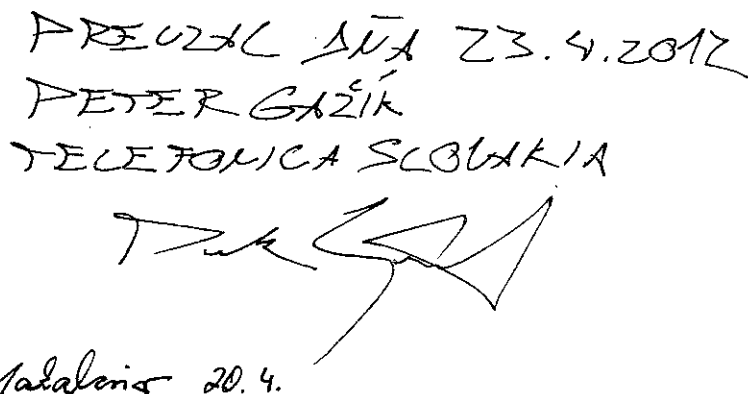 PREVZAL DŇA 23.4.2012
PETER GAŽÍK
TELEFONICA SLOVAKIA
20.4.